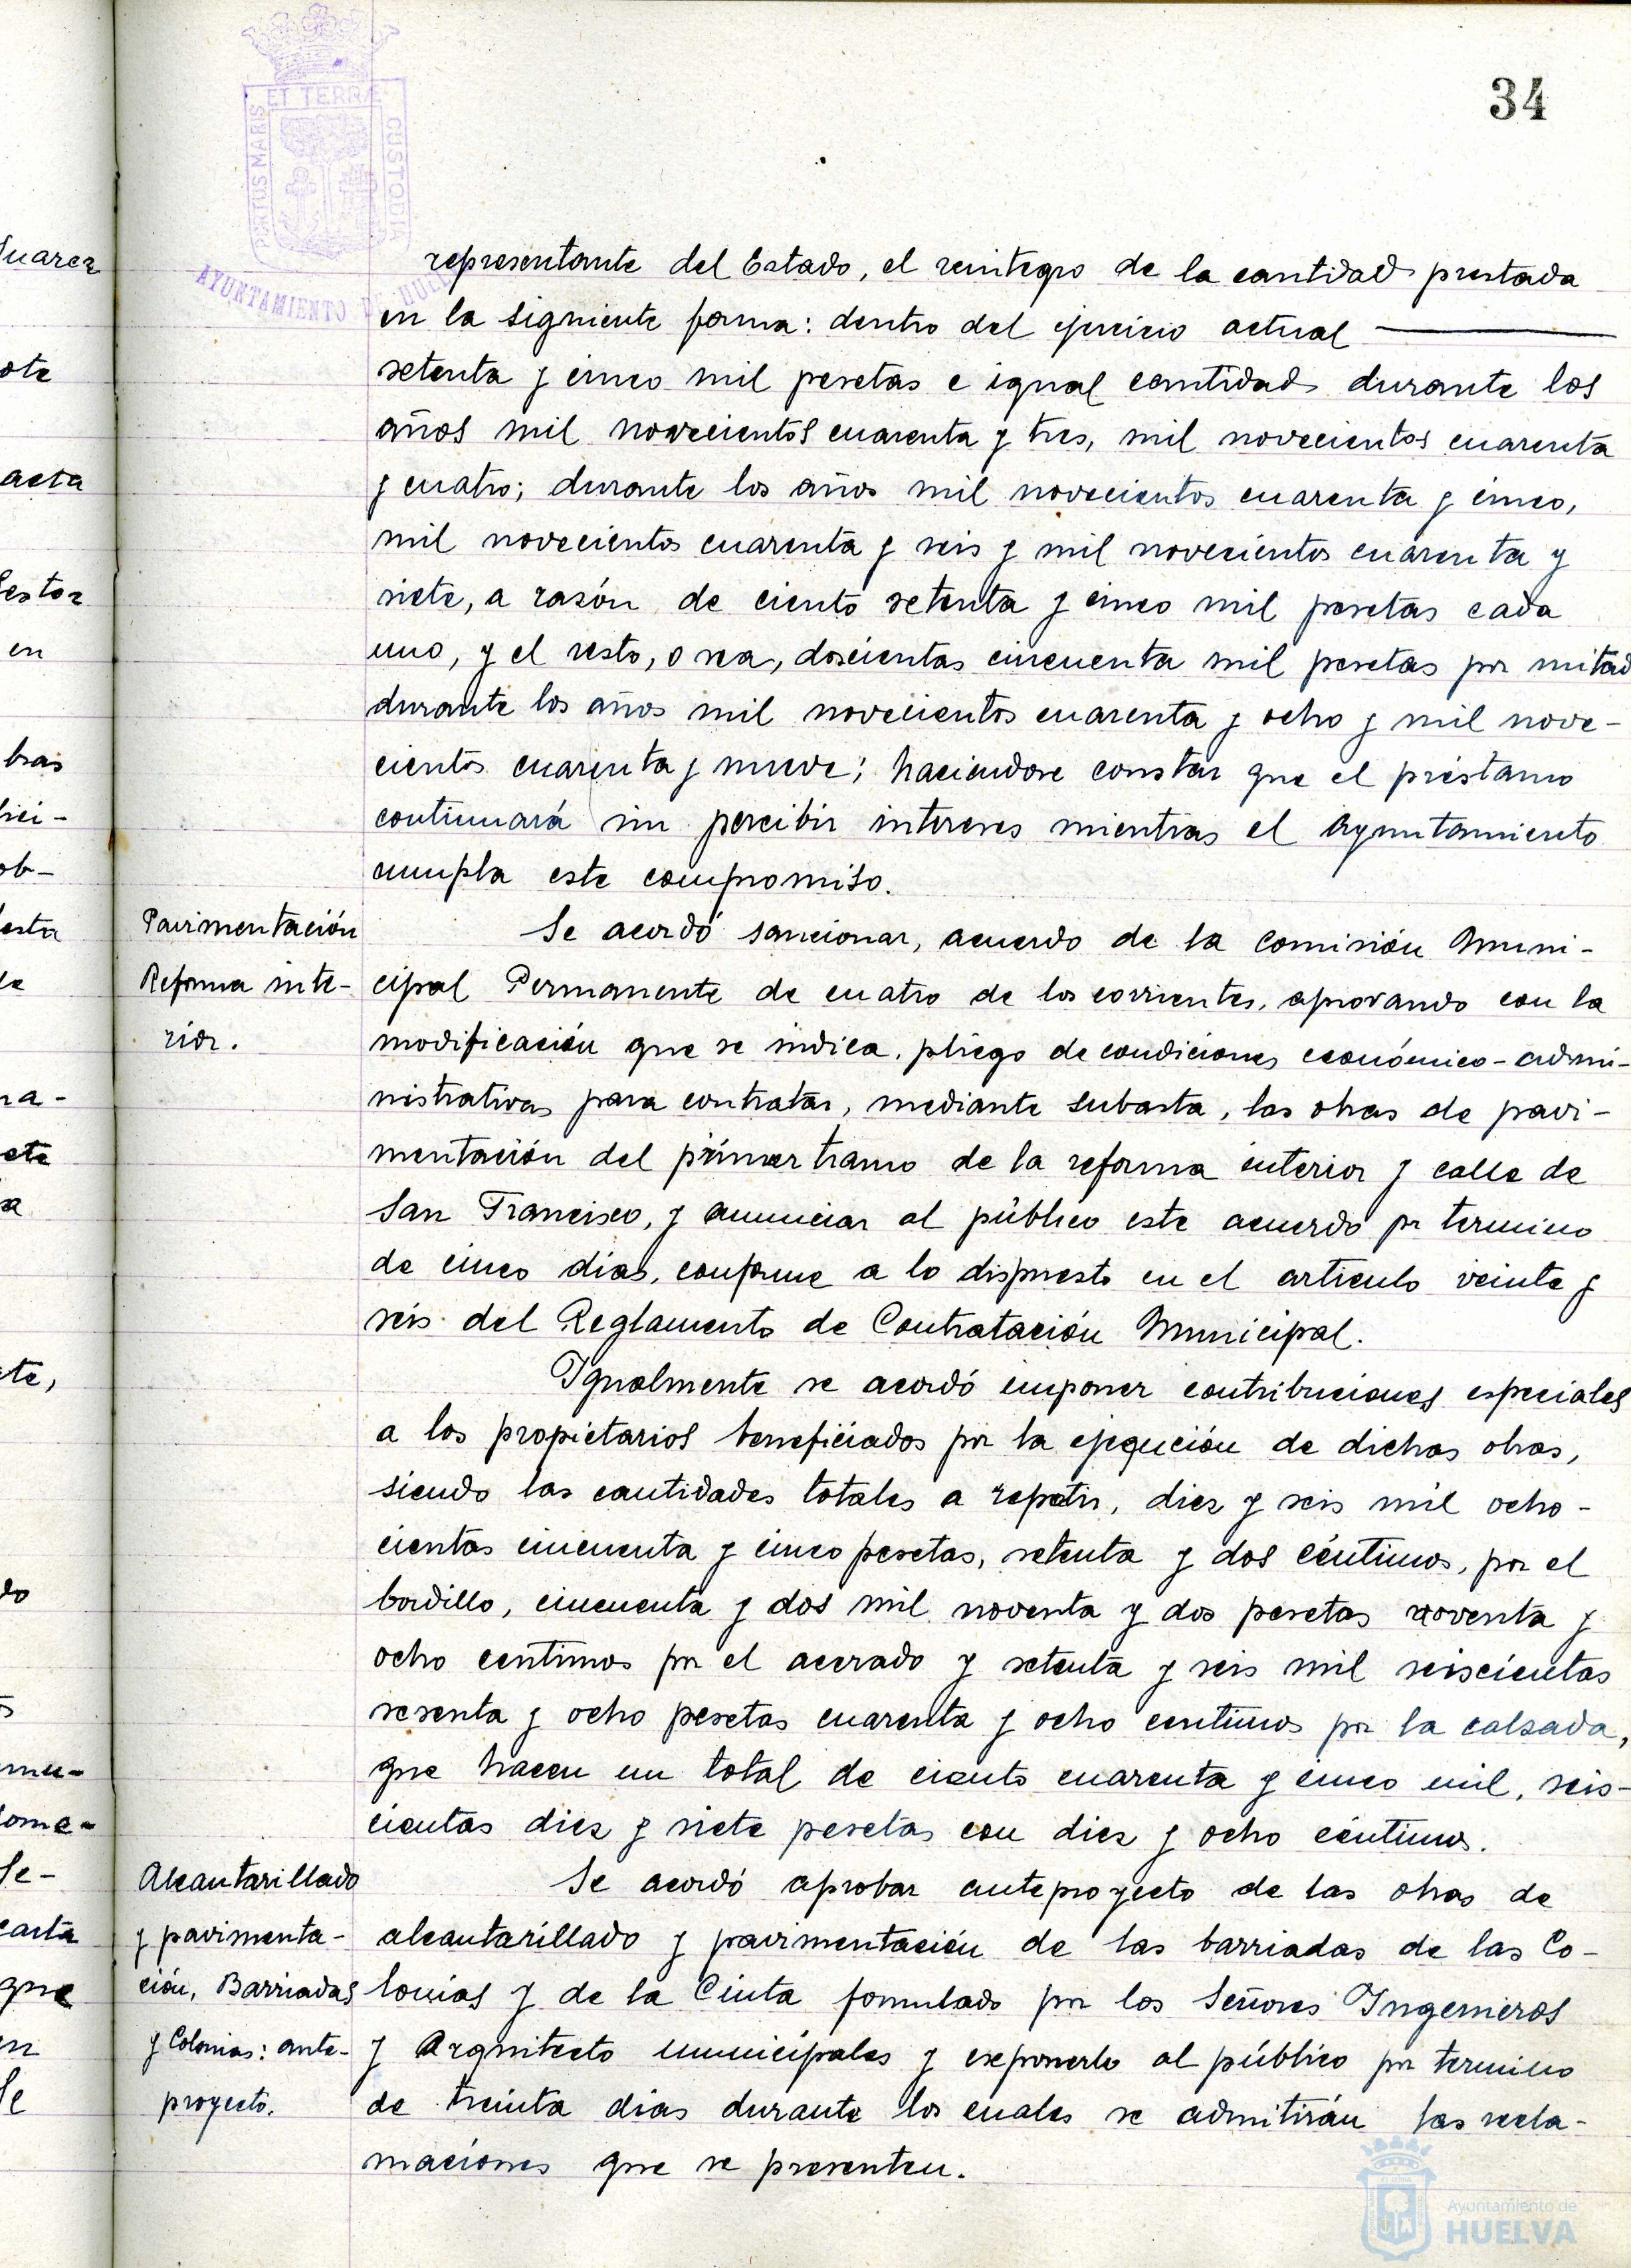 34
PORTUS MARIS ET TERRÆ CUSTODIA
AYUNTAMIENTO DE HUEL
representante del Estado, el reintegro de la cantidad prestada
en la siguiente forma: dentro del ejercicio actual
setenta y cinco mil pesetas e igual cantidad durante los
años mil novecientos cuarenta y tres, mil novecientos cuarenta
y cuatro; durante los años mil novecientos cuarenta y cinco,
mil novecientos cuarenta y seis y mil novecientos cuarenta y
siete, a razón de ciento setenta y cinco mil pesetas cada
uno, y el resto, o sea, doscientas cincuenta mil pesetas por mitad
durante los años mil novecientos cuarenta y ocho y mil nove-
cientos cuarenta y nueve; haciendose constar que el préstamo
continuará sin percibir intereses mientras el Ayuntamiento
cumpla este compromiso.
Pavimentación
Reforma inte-
rior.
Se acordó sancionar, acuerdo de la Comisión Muni-
cipal Permanente de cuatro de los corrientes, aprovando con la
modificación que se indica, pliego de condiciones económico-admi-
nistrativas para contratar, mediante subasta, las obras de pavi-
mentación del primer tramo de la reforma interior y calle de
San Francisco, y anunciar al público este acuerdo pr termino
de cinco días, conforme a lo dispuesto en el articulo veinte y
seis del Reglamento de Contratación Municipal.
Igualmente se acordó imponer contribuciones especiales
a los propietarios beneficiados por la ejecución de dichas obras,
siendo las cantidades totales a repatir, diez y seis mil ocho-
cientas cincuenta y cinco pesetas, setenta y dos céntimos, por el
bordillo, cincuenta y dos mil noventa y dos pesetas noventa y
ocho centimos por el acerado y setenta y seis mil seiscientas
sesenta y ocho pesetas cuarenta y ocho centimos por la calzada,
que hacen un total de ciento cuarenta y cinco mil, seis-
cientas diez y siete pesetas con diez y ocho céntimos.
Alcantarillado
y pavimenta-
ción, Barriadas
y Colonias: ante-
proyecto.
Se acordó aprobar anteproyecto de las obras de
alcantarillado y pavimentación de las barriadas de las Co-
lonias y de la Cinta fomulado por los Señores Ingenieros
y Arquitecto municipales y exponerlo al público por termino
de treinta días durante los cuales se admitirán las recla-
maciones que se presenten.
Suarez
ote
acta
Gestor
en
bras
ob-
esta
na-
ete
te,
do
Se-
carta
que
Ayuntamiento de
HUELVA